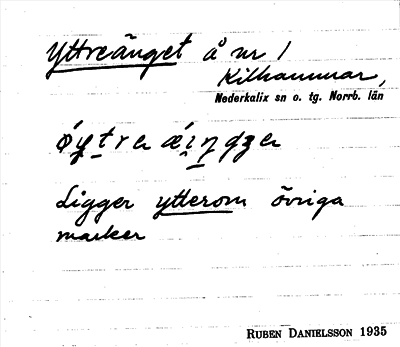 Yttreänget å nr 1
Kilhammar,
Nederkalix sn o. tg. Norrb. län
Ligger ytterom övriga
marker
RUBEN DANIELSSON 1935